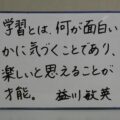 学習とは、何が面白い
かに気づくことであり、
楽しいと思えることが
才能。 益川敏英